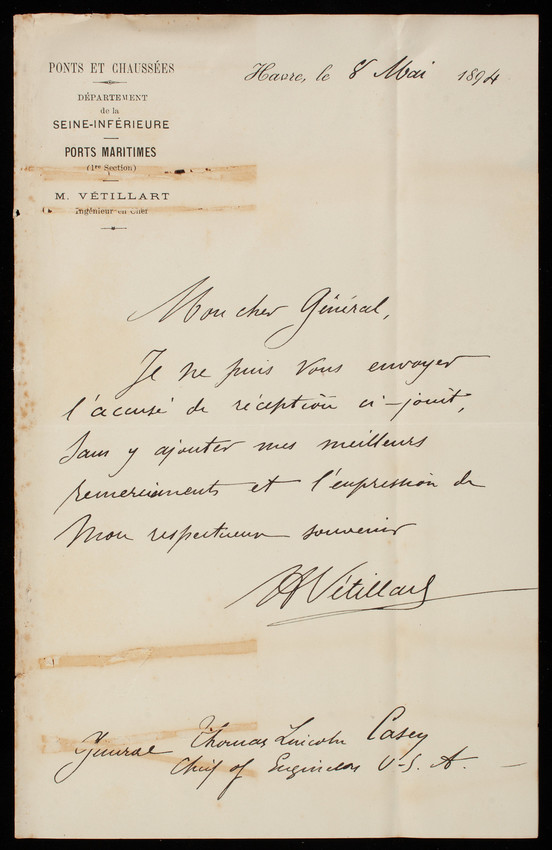 PONTS ET CHAUSSÉES
DÉPARTEMENT
de la
SEINE-INFÉRIEURE
PORTS MARITIMES
(1re Section)
M. VÉTILLART
Ingénieur en Chef
Havre, le 8 Mai 1894
Mon cher Général,
Je ne puis vous envoyer
l'accusé de réception ci-joint,
sans y ajouter mes meilleurs
remerciements et l'expression de
mon respectueux souvenir
HVétillart
General Thomas Lincoln Casey
Chief of Engineers U.S.A.